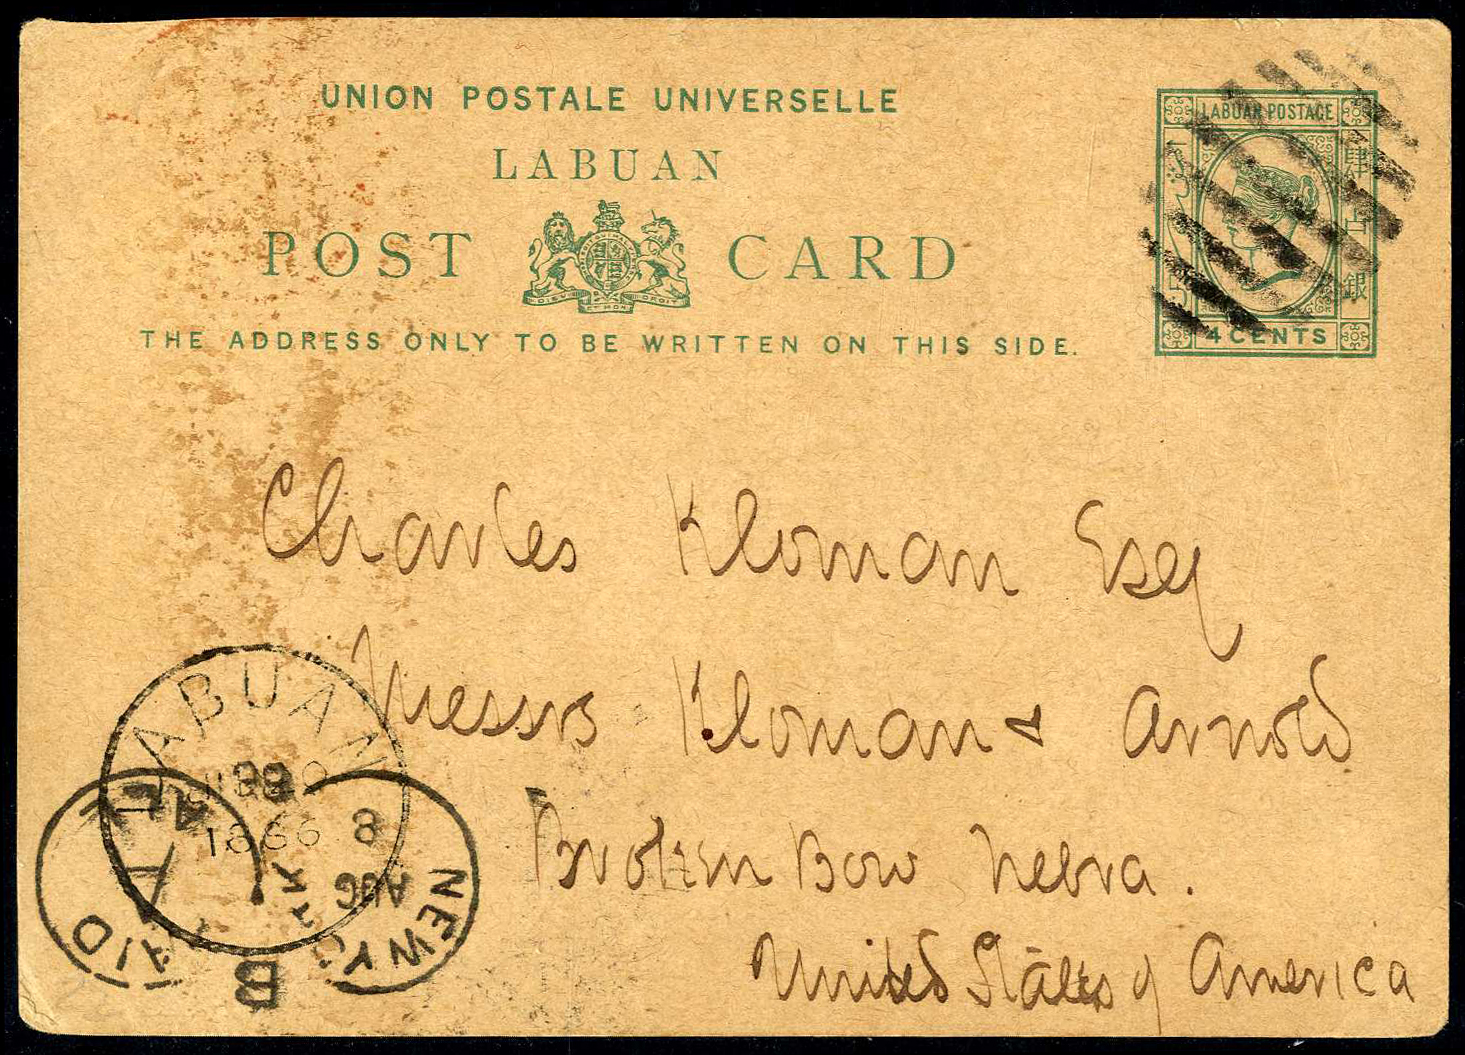 UNION POSTALE UNIVERSELLE
LABUAN
POST CARD
DIEU ET MON DROIT
THE ADDRESS ONLY TO BE WRITTEN ON THIS SIDE.
LABUAN POSTAGE
4 CENTS
Charles Kloman Esq
Messrs Kloman & Arnold
Broken Bow Nebra.
United States of America
LABUAN
1886
NEW YORK
AUG
8
PAID
ALL
B